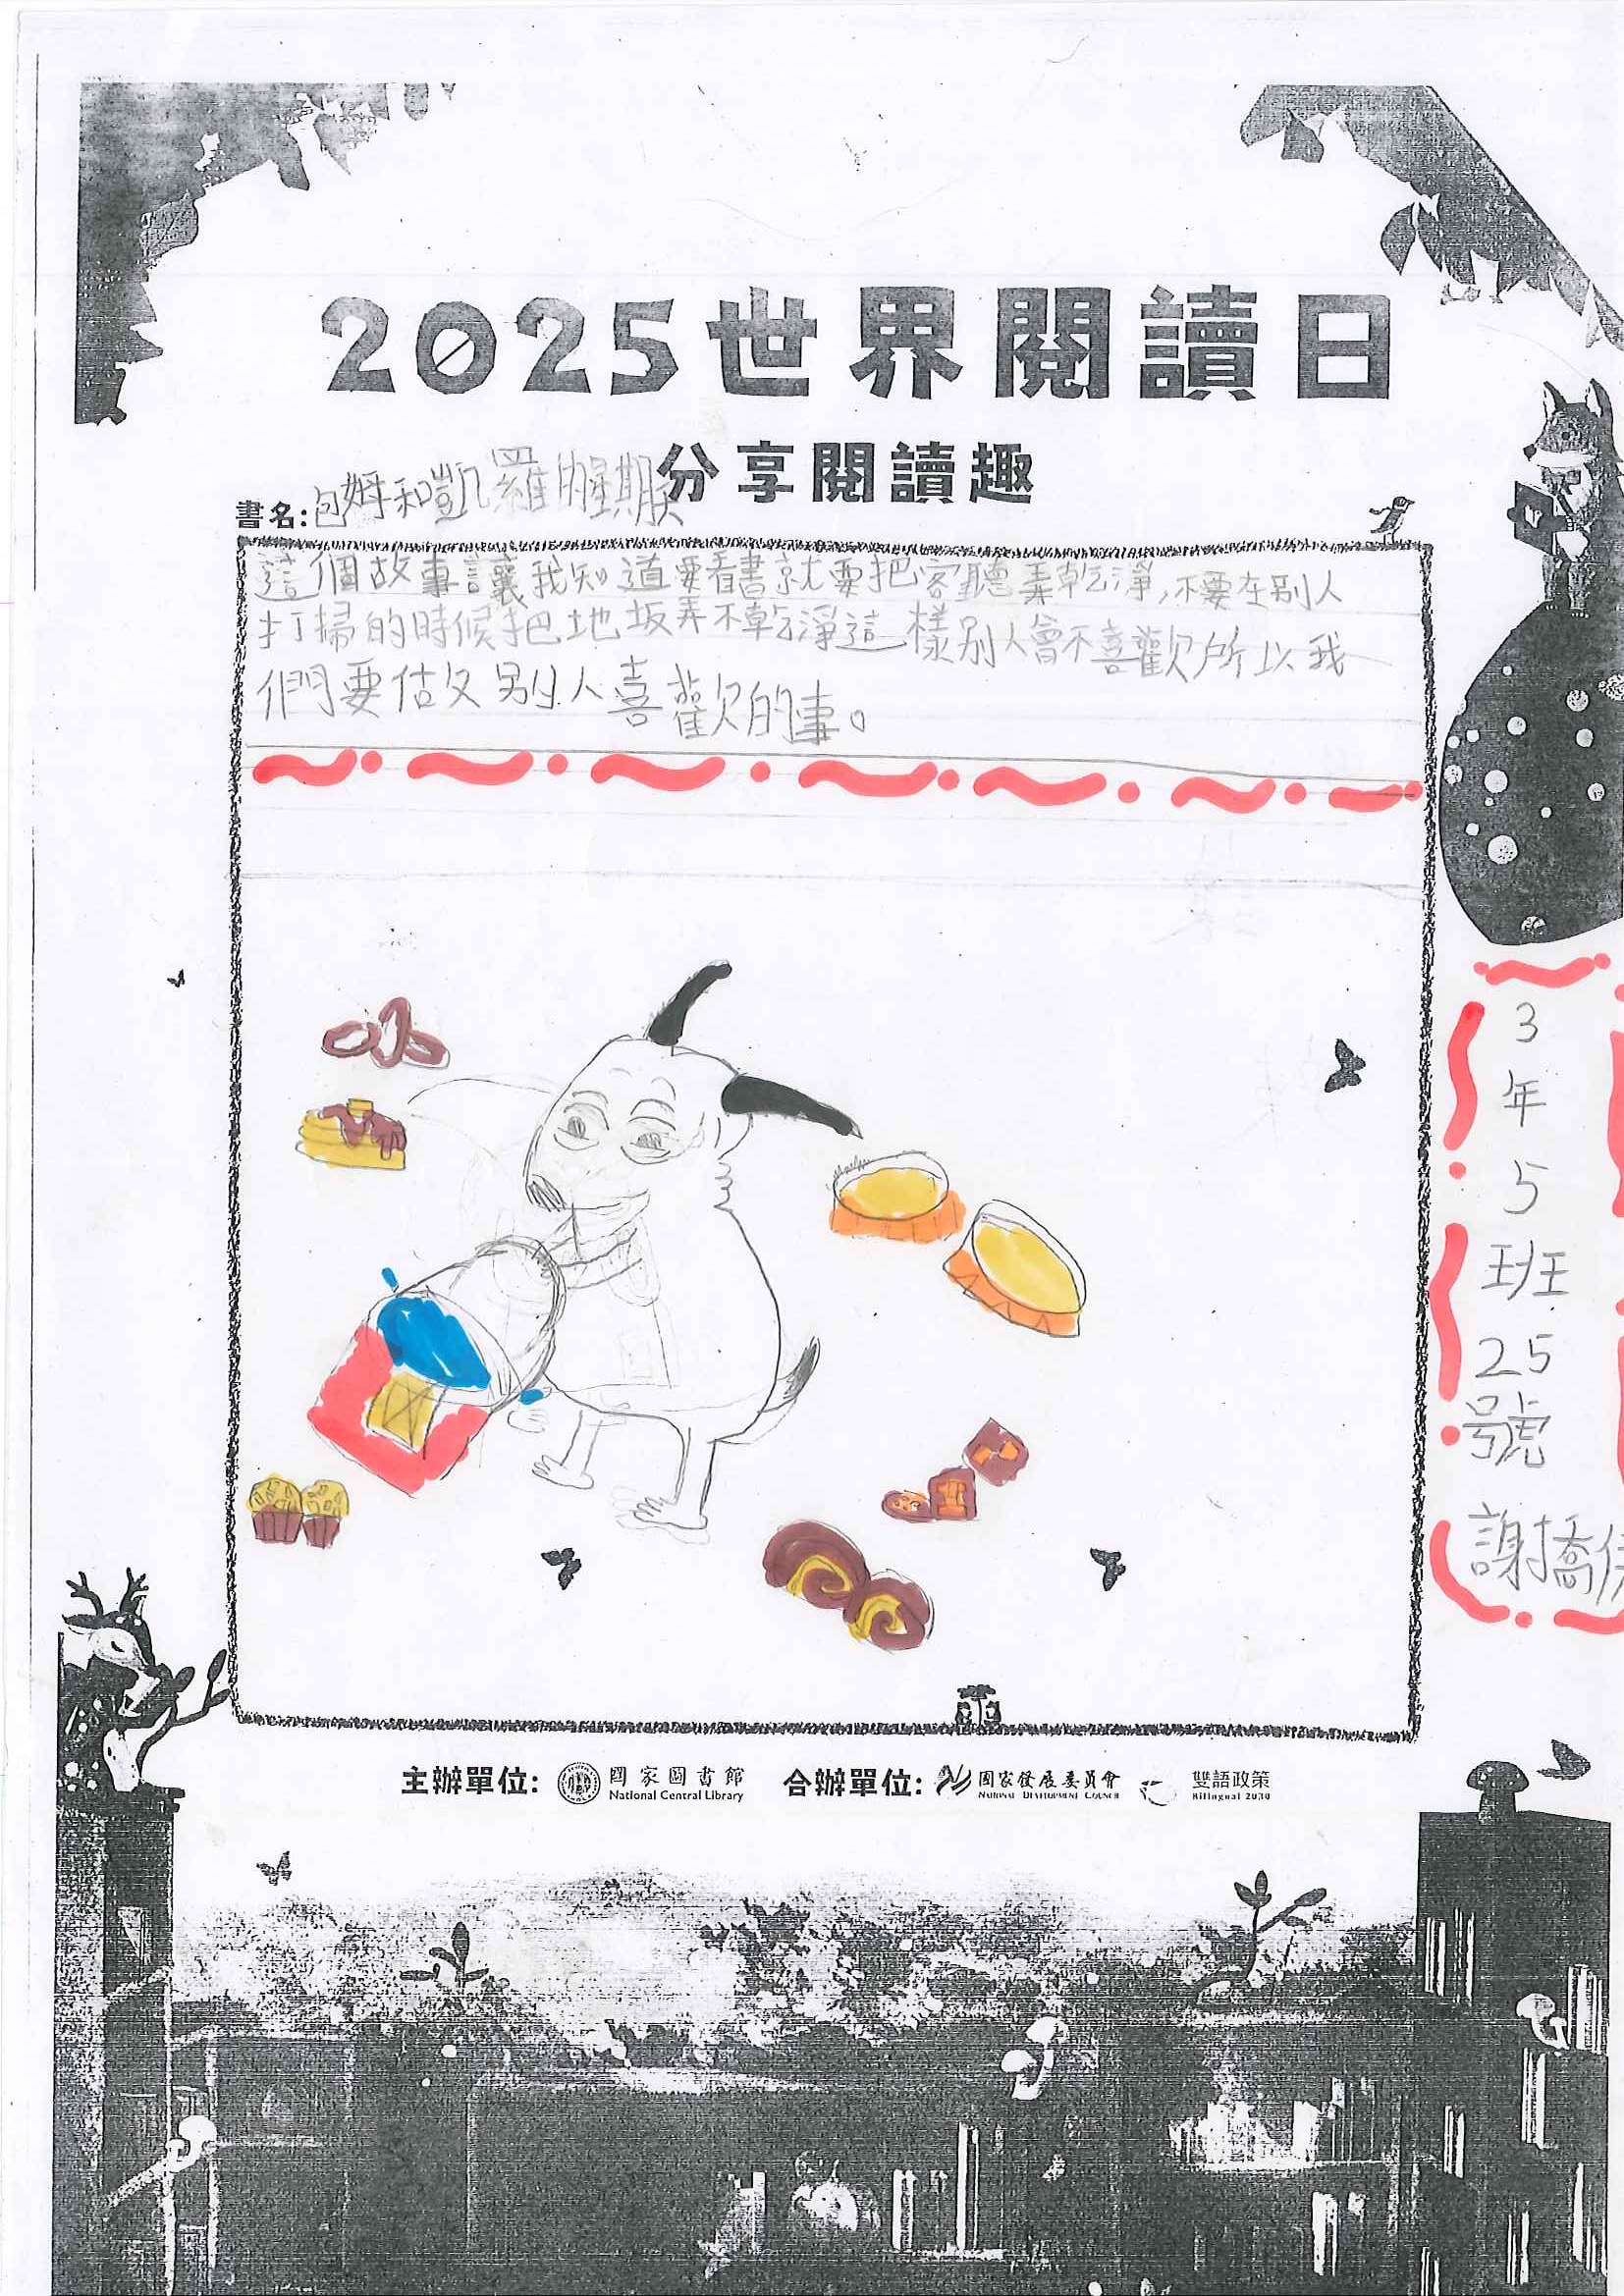 2025世界閱讀日
分享閱讀趣
書名:包姆和凱羅的星期天
這個故事讓我知道要看書就要把客聽弄乾淨,不要在別人
打掃的時候把地坂弄不乾淨這樣別人會不喜歡所以我
們要估文別人喜歡的事。
3
年
5
班
25
號
謝搞
主辦單位: 國家圖書館 合辦單位: 國家發展委員會 雙語政策
National Central Library NATIONAL DEVELOPMENT COUNCIL Bilingual 2030